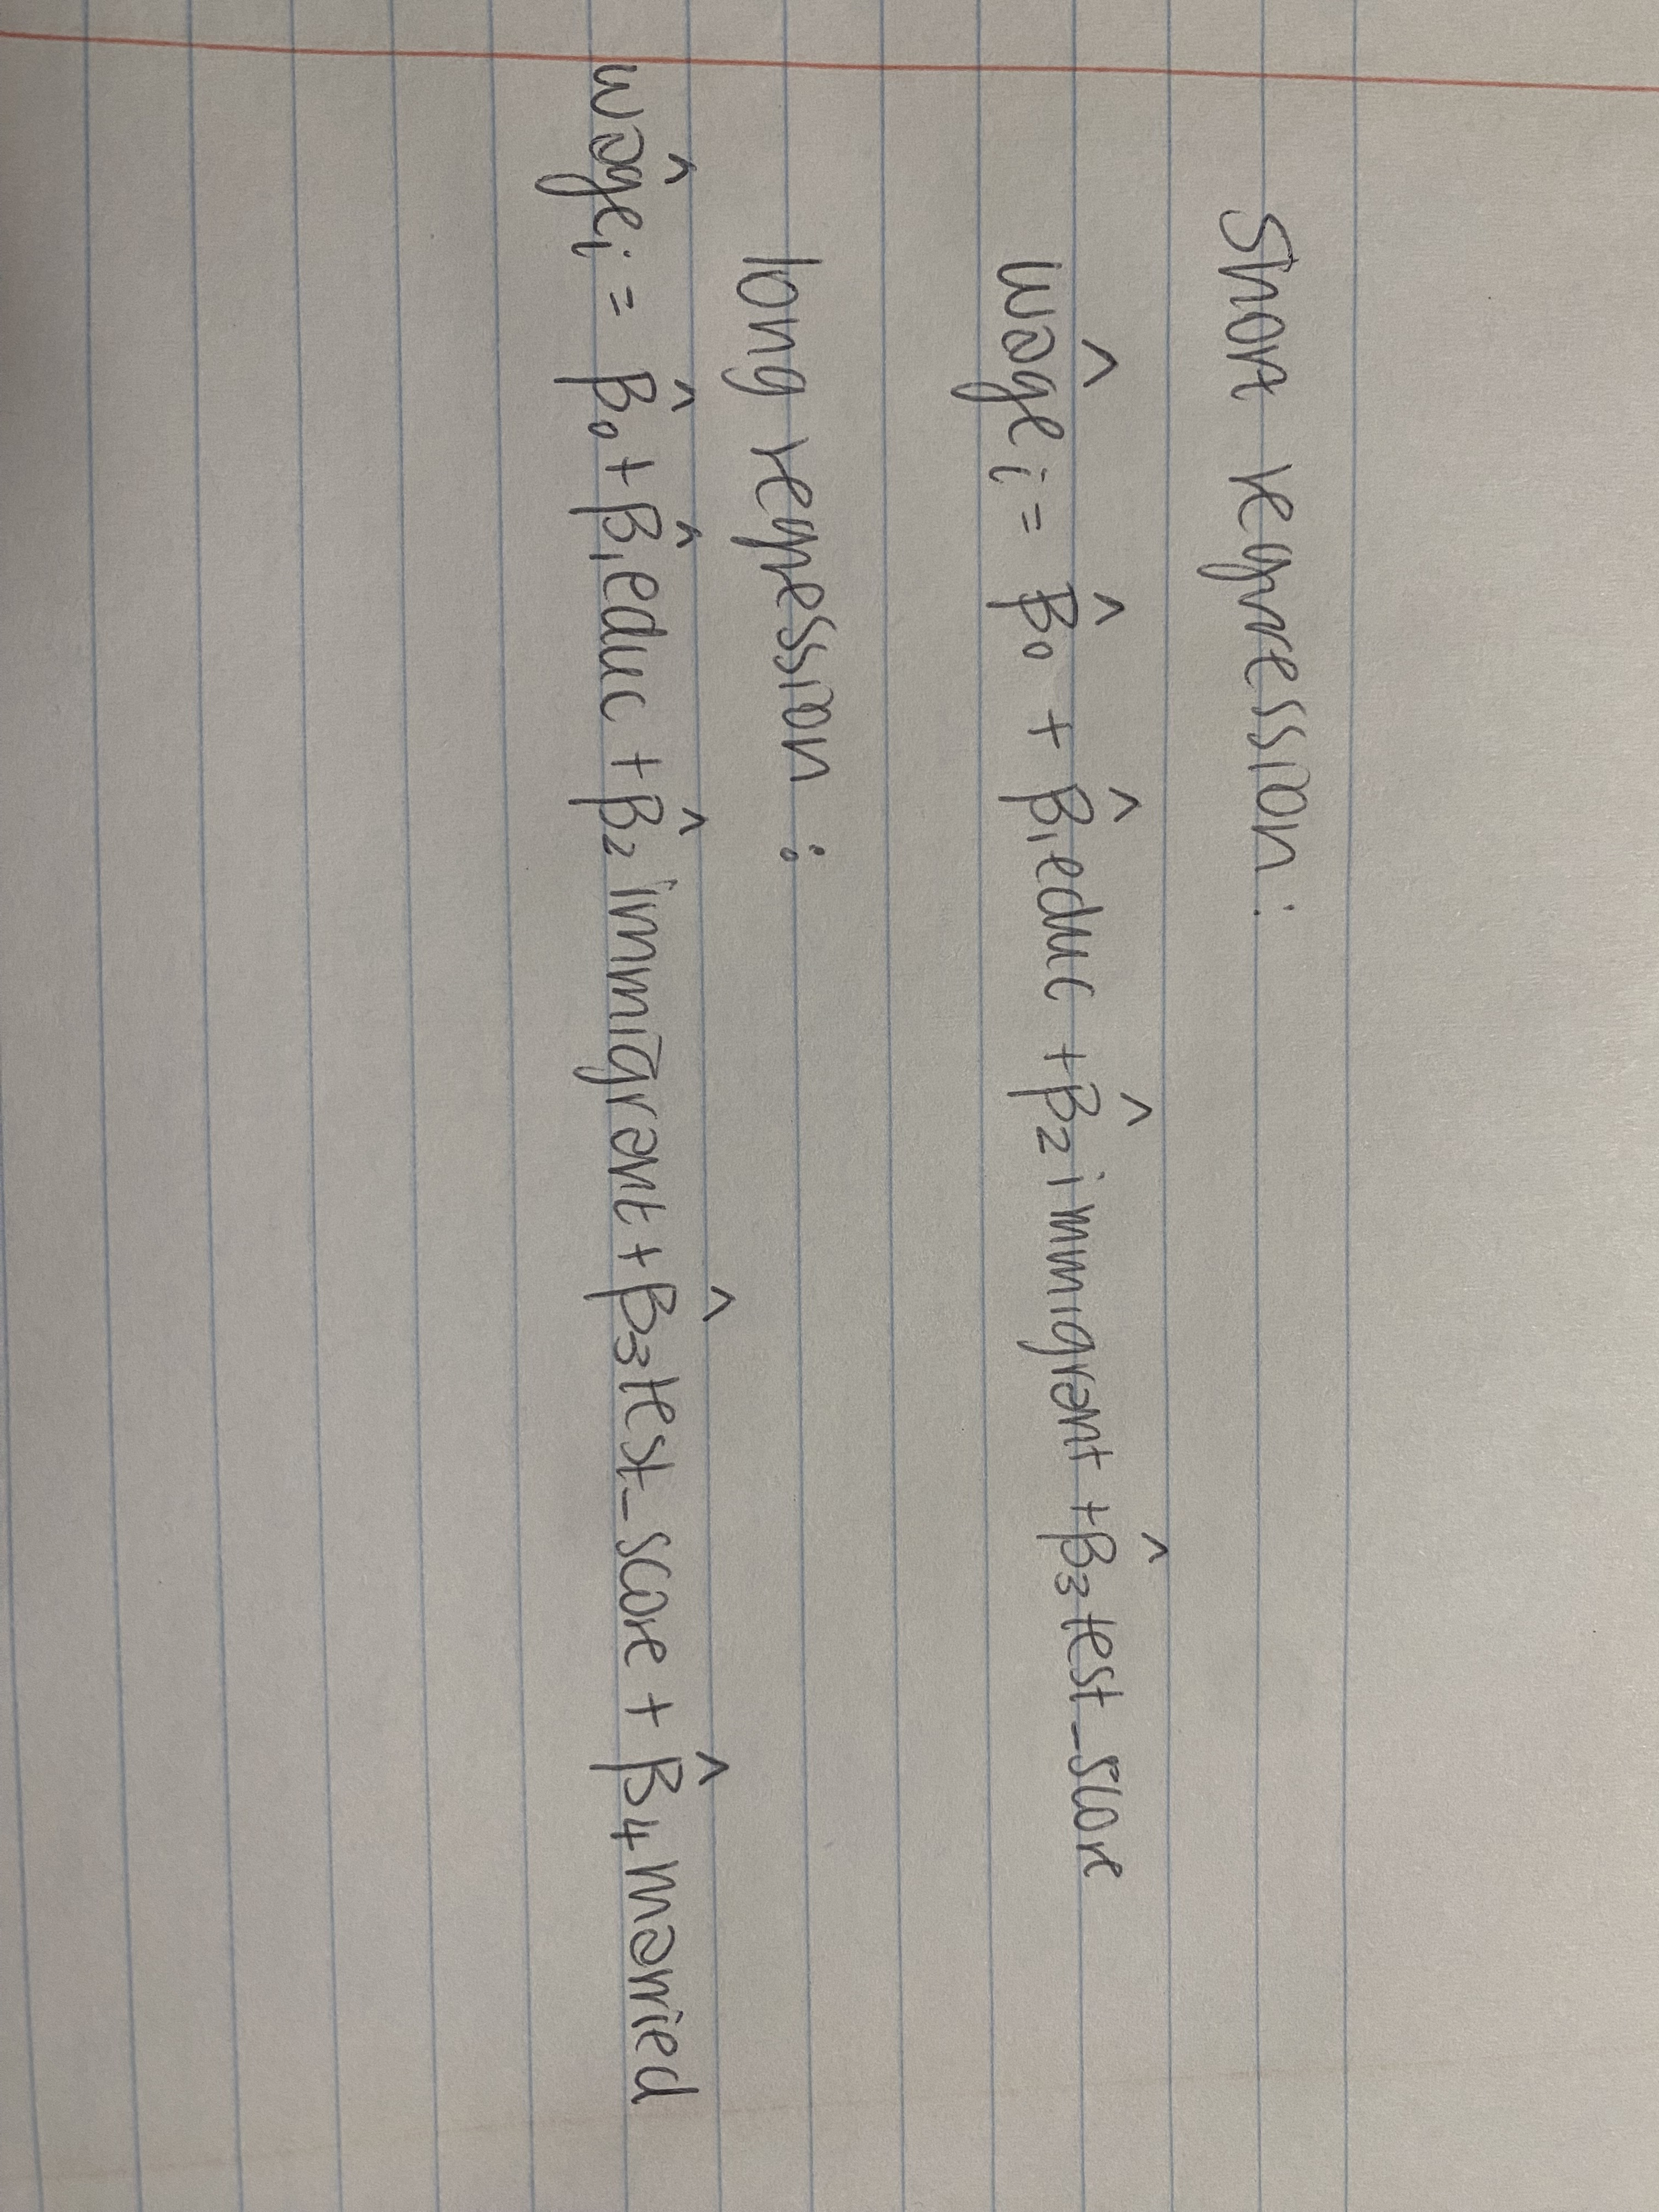 Short regression:
ŵageᵢ = β̂₀ + β̂₁educ + β̂₂immigrant + β̂₃test_score
long regression:
ŵageᵢ = β̂₀ + β̂₁educ + β̂₂immigrant + β̂₃test_score + β̂₄married